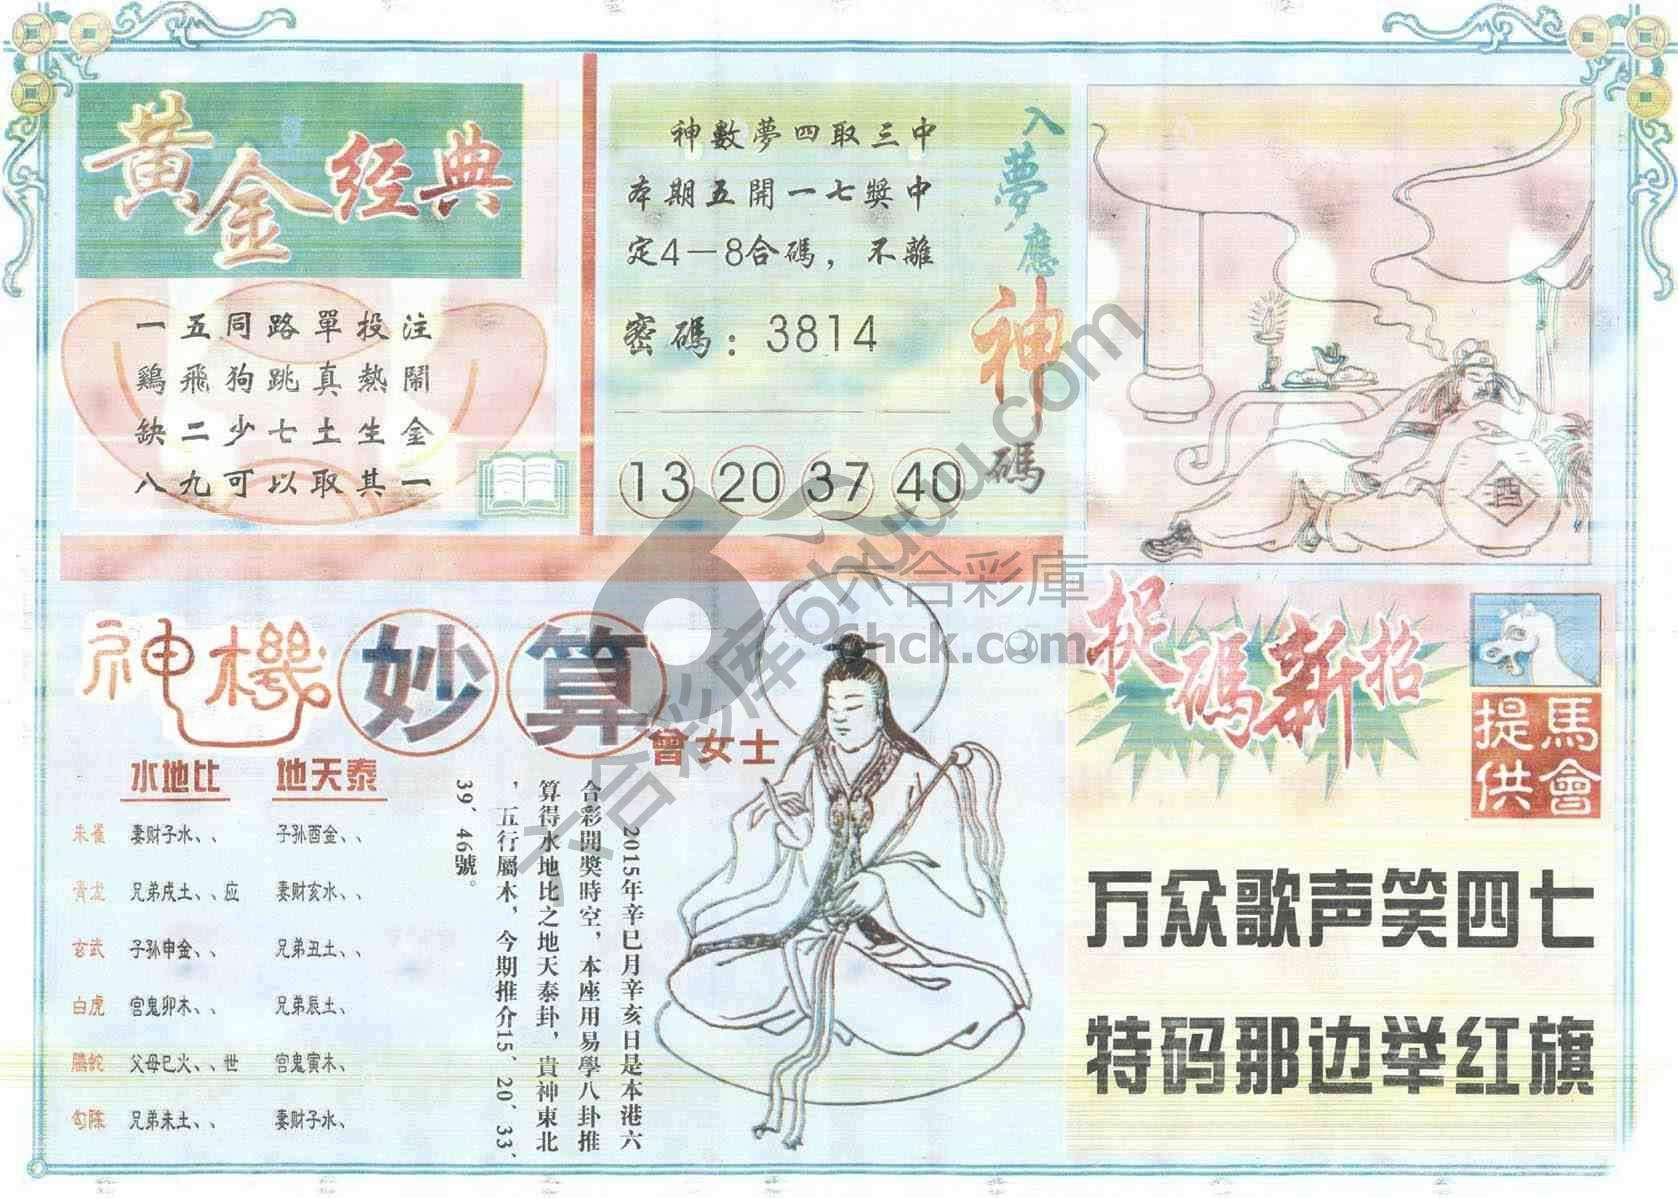 黄金经典
一五同路單投注
鷄飛狗跳真熱鬧
缺二少七土生金
八九可以取其一
神數夢四取三中
本期五開一七獎中
定4—8合碼，不離
密碼：3814
13 20 37 40
入夢應神碼
酉
神機妙算
曾女士
水地比 地天泰
朱雀 妻财子水、、 子孙酉金、、
青龙 兄弟戌土、、应 妻财亥水、、
玄武 子孙申金、、 兄弟丑土、、
白虎 官鬼卯木、、 兄弟辰土、
腾蛇 父母巳火、、世 官鬼寅木、
勾陈 兄弟未土、、 妻财子水、
2015年辛巳月辛亥日是本港六
合彩開獎時空，本座用易學八卦推
算得水地比之地天泰卦，貴神東北
，五行屬木，今期推介15、20、33、
39、46號。
捉碼新招
馬會提供
万众歌声笑四七
特码那边举红旗
六合彩库6hutu.com
六合彩庫
6hck.com